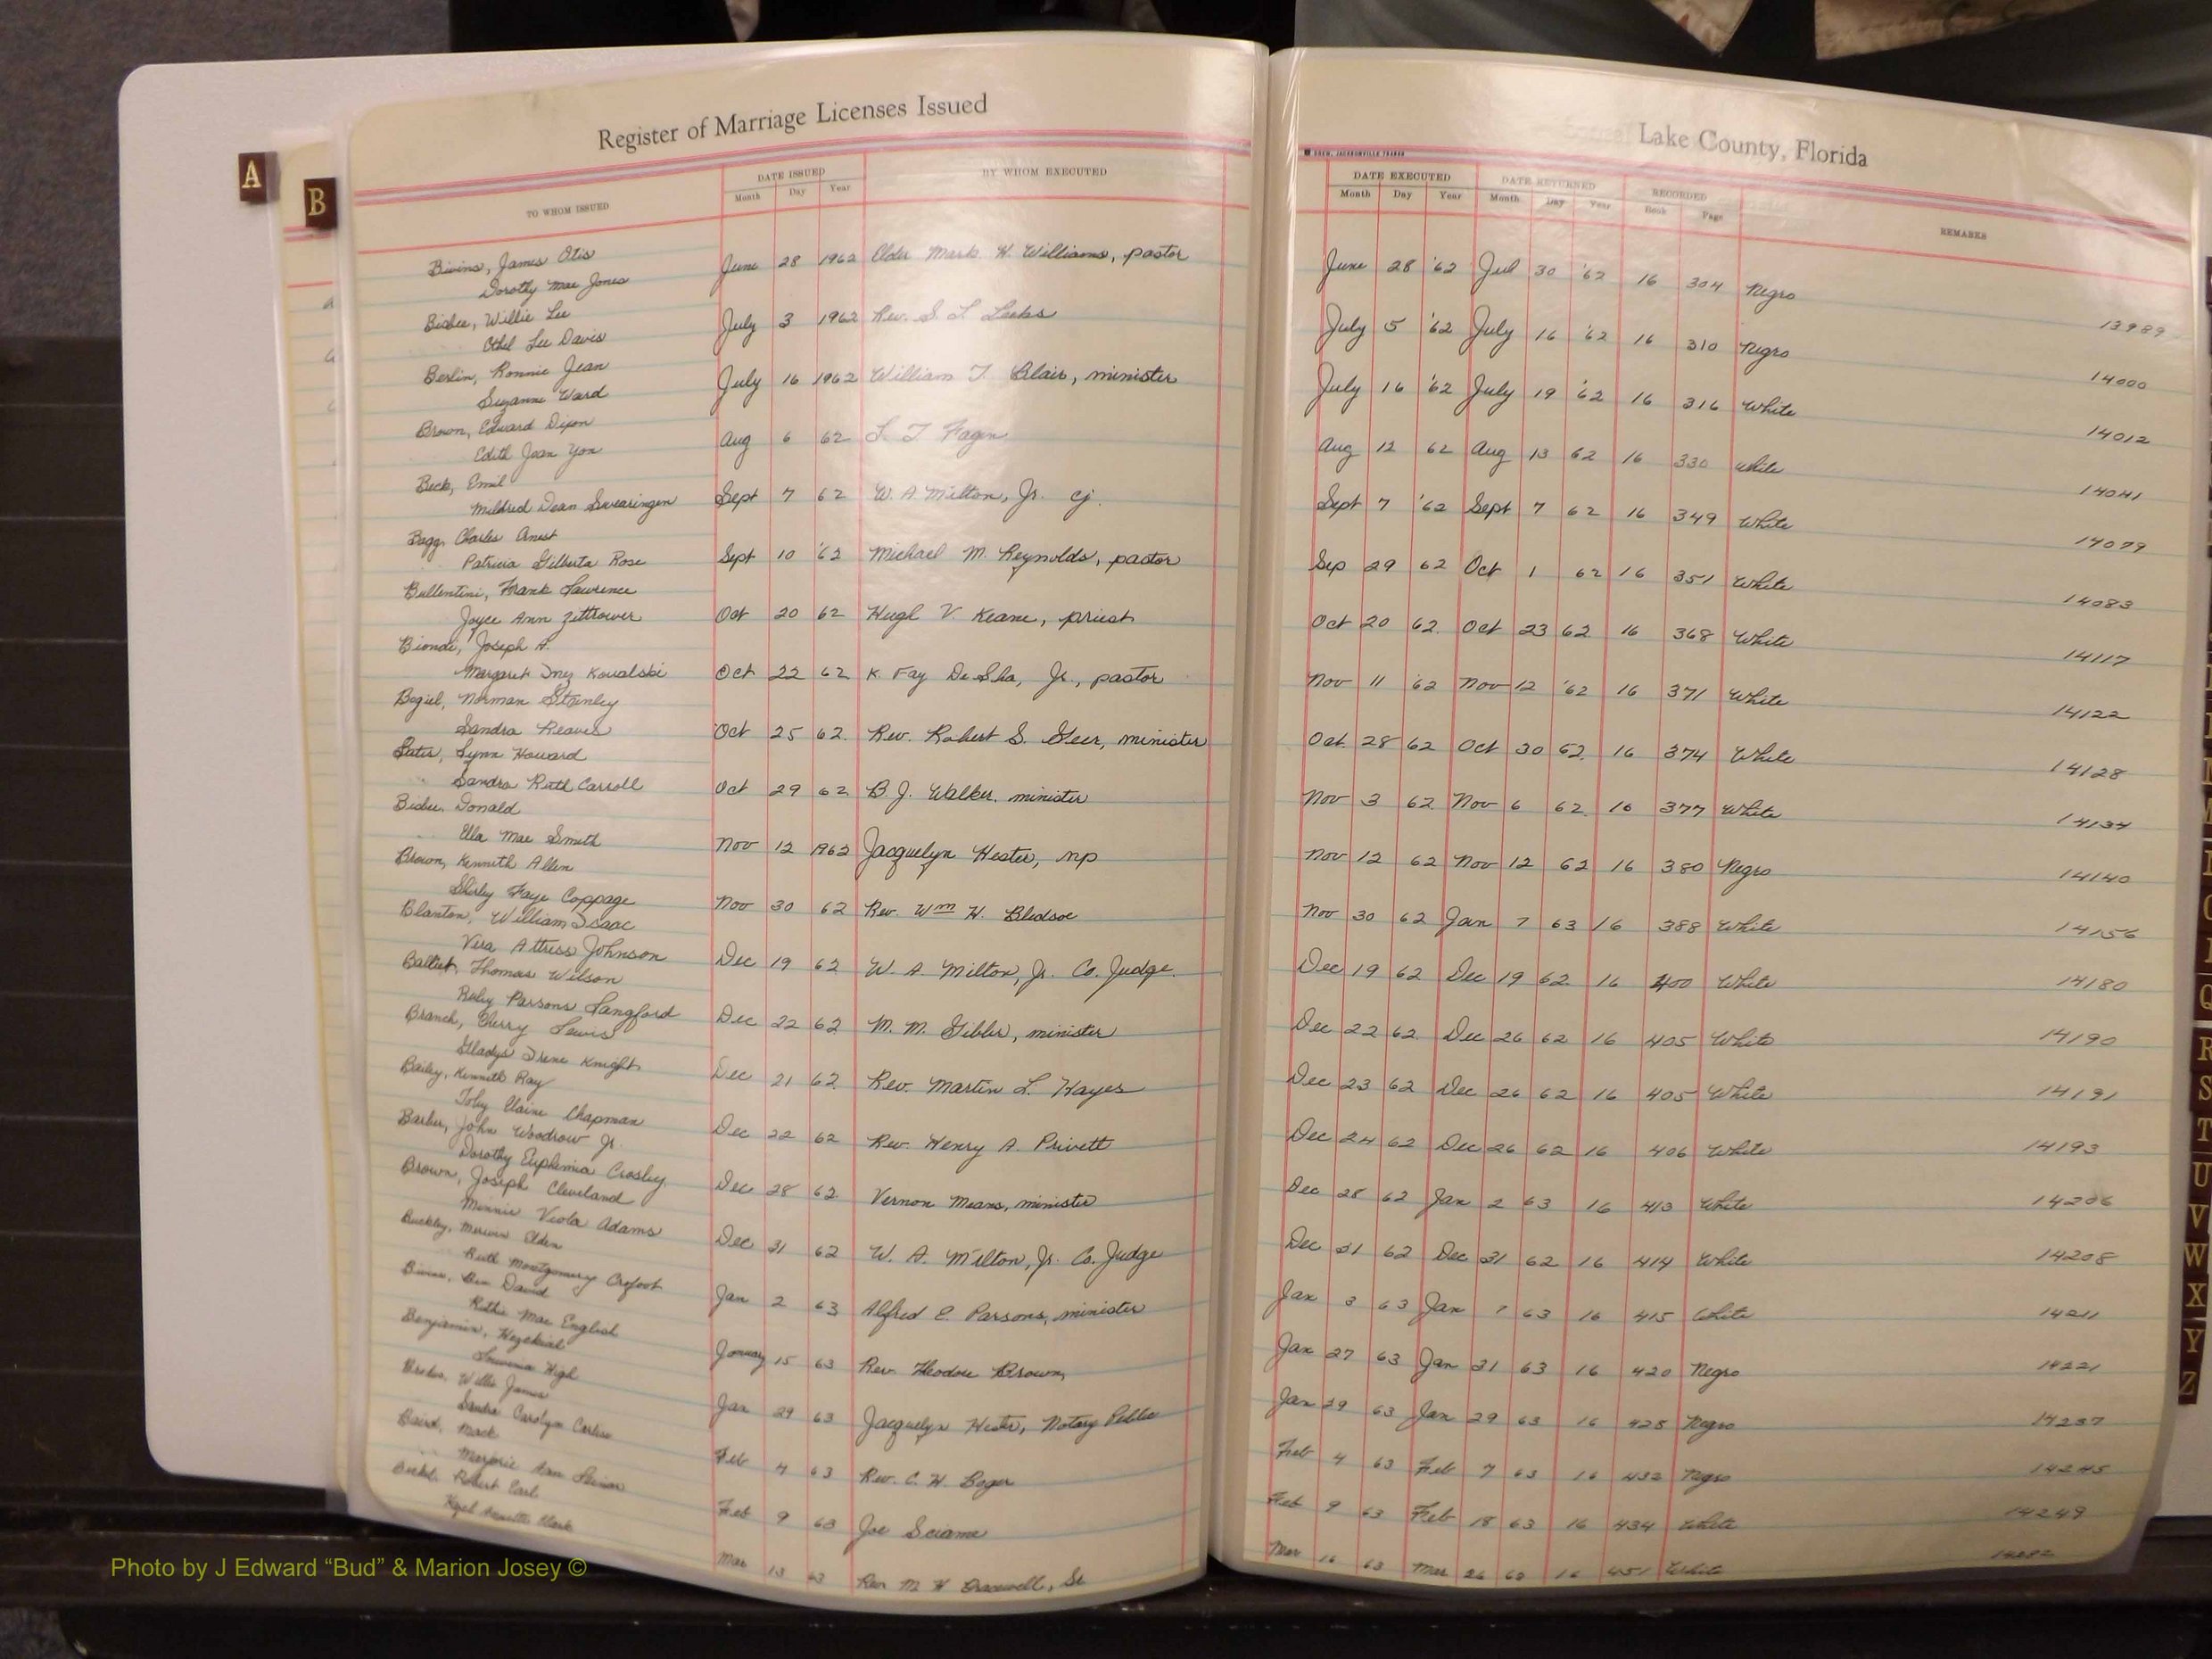 Register of Marriage Licenses Issued
Lake County, Florida
DREW, JACKSONVILLE
TO WHOM ISSUED
DATE ISSUED
Month Day Year
BY WHOM EXECUTED
DATE EXECUTED
Month Day Year
DATE RETURNED
Month Day Year
RECORDED
Book Page
REMARKS
A
B
Bivins, James Otis
Dorothy Mae Jones
June 28 1962 Elder Mark H. Williams, pastor June 28 '62 Jul 30 '62 16 304 Negro 13989
Bisbee, Willie Lee
Ethel Lee Davis
July 3 1962 Rev. S. L July 5 '62 July 16 '62 16 310 Negro 14000
Berlin, Ronnie Jean
Suzanne Ward
July 16 1962 William T. Blair, minister July 16 '62 July 19 '62 16 316 White 14012
Brown, Edward Dixon
Edith Jean Yon
Aug 6 62 L. T Fagin Aug 12 62 Aug 13 62 16 330 White 14041
Beck, Emil
Mildred Dean Swearingen
Sept 7 62 W. A. Milton, Jr. cj. Sept 7 '62 Sept 7 62 16 349 White 14079
Bagg, Charles
Patricia Gilberta Rose
Sept 10 '62 Michael M. Reynolds, pastor Sep 29 62 Oct 1 62 16 351 White 14083
Ballentini, Frank Lawrence
Joyce Ann Zittrower
Oct 20 62 Hugh V. Keane, priest Oct 20 62 Oct 23 62 16 368 White 14117
Biondi, Joseph A.
Margaret Inez Kowalski
Oct 22 62 K. Fay De Sha, Jr., pastor Nov 11 '62 Nov 12 '62 16 371 White 14122
Bogiel, Norman Stanley
Sandra Reaves
Oct 25 62 Rev. Robert S. Geer, minister Oct 28 62 Oct 30 62 16 374 White 14128
Bates, Lynn Howard
Sandra Ruth Carroll
Oct 29 62 B. J. Walker, minister Nov 3 62 Nov 6 62 16 377 White 14134
Bisbee, Donald
Ella Mae Smith
Nov 12 1962 Jacquelyn Hester, np Nov 12 62 Nov 12 62 16 380 Negro 14140
Brown, Kenneth Allen
Shirley Faye Coppage
Nov 30 62 Rev. Wm H. Bledsoe Nov 30 62 Jan 7 63 16 388 White 14156
Blanton, William Isaac
Vera Attress Johnson
Dec 19 62 W. A. Milton, Jr. Co. Judge Dec 19 62 Dec 19 62 16 400 White 14180
Balliet, Thomas Wilson
Ruby Parsons Langford
Dec 22 62 M. M. Gibbs, minister Dec 22 62 Dec 26 62 16 405 White 14190
Branch, Cherry Lewis
Gladys Irene Knight
Dec 21 62 Rev. Martin L. Hayes Dec 23 62 Dec 26 62 16 405 White 14191
Bailey, Kenneth Ray
Toby Elaine Chapman
Dec 22 62 Rev. Henry A. Privett Dec 24 62 Dec 26 62 16 406 White 14193
Barber, John Woodrow Jr.
Dorothy Euphemia Crosley
Dec 28 62 Vernon Means, minister Dec 28 62 Jan 2 63 16 413 White 14206
Brown, Joseph Cleveland
Minnie Viola Adams
Dec 31 62 W. A. Milton, Jr. Co. Judge Dec 31 62 Dec 31 62 16 414 White 14208
Buckley, Merwin Elden
Ruth Montgomery Crofoot
Jan 2 63 Alfred E. Parsons, minister Jan 3 63 Jan 7 63 16 415 White 14211
Bivins, Ben David
Ruthie Mae English
January 15 63 Rev. Theodore Brown Jan 27 63 Jan 31 63 16 420 Negro 14221
Benjamin, Hezekiah
High
Jan 29 63 Jacquelyn Hester, Notary Public Jan 29 63 Jan 29 63 16 425 Negro 14237
Willie James
Sandra Carolyn
Feb 4 63 Rev. C. H. Boger Feb 4 63 Feb 7 63 16 432 Negro 14245
Baird, Mack
Marjorie Ann
Feb 9 63 Joe Sciame Feb 9 63 Feb 18 63 16 434 White 14249
Robert Earl
Annette Clark
Mar 13 63 Rev M. H. Bracewell, Sr Mar 16 63 Mar 26 63 16 451 White 14282
Q
R
S
T
U
V
W
X
Y
Z
Photo by J Edward “Bud” & Marion Josey ©